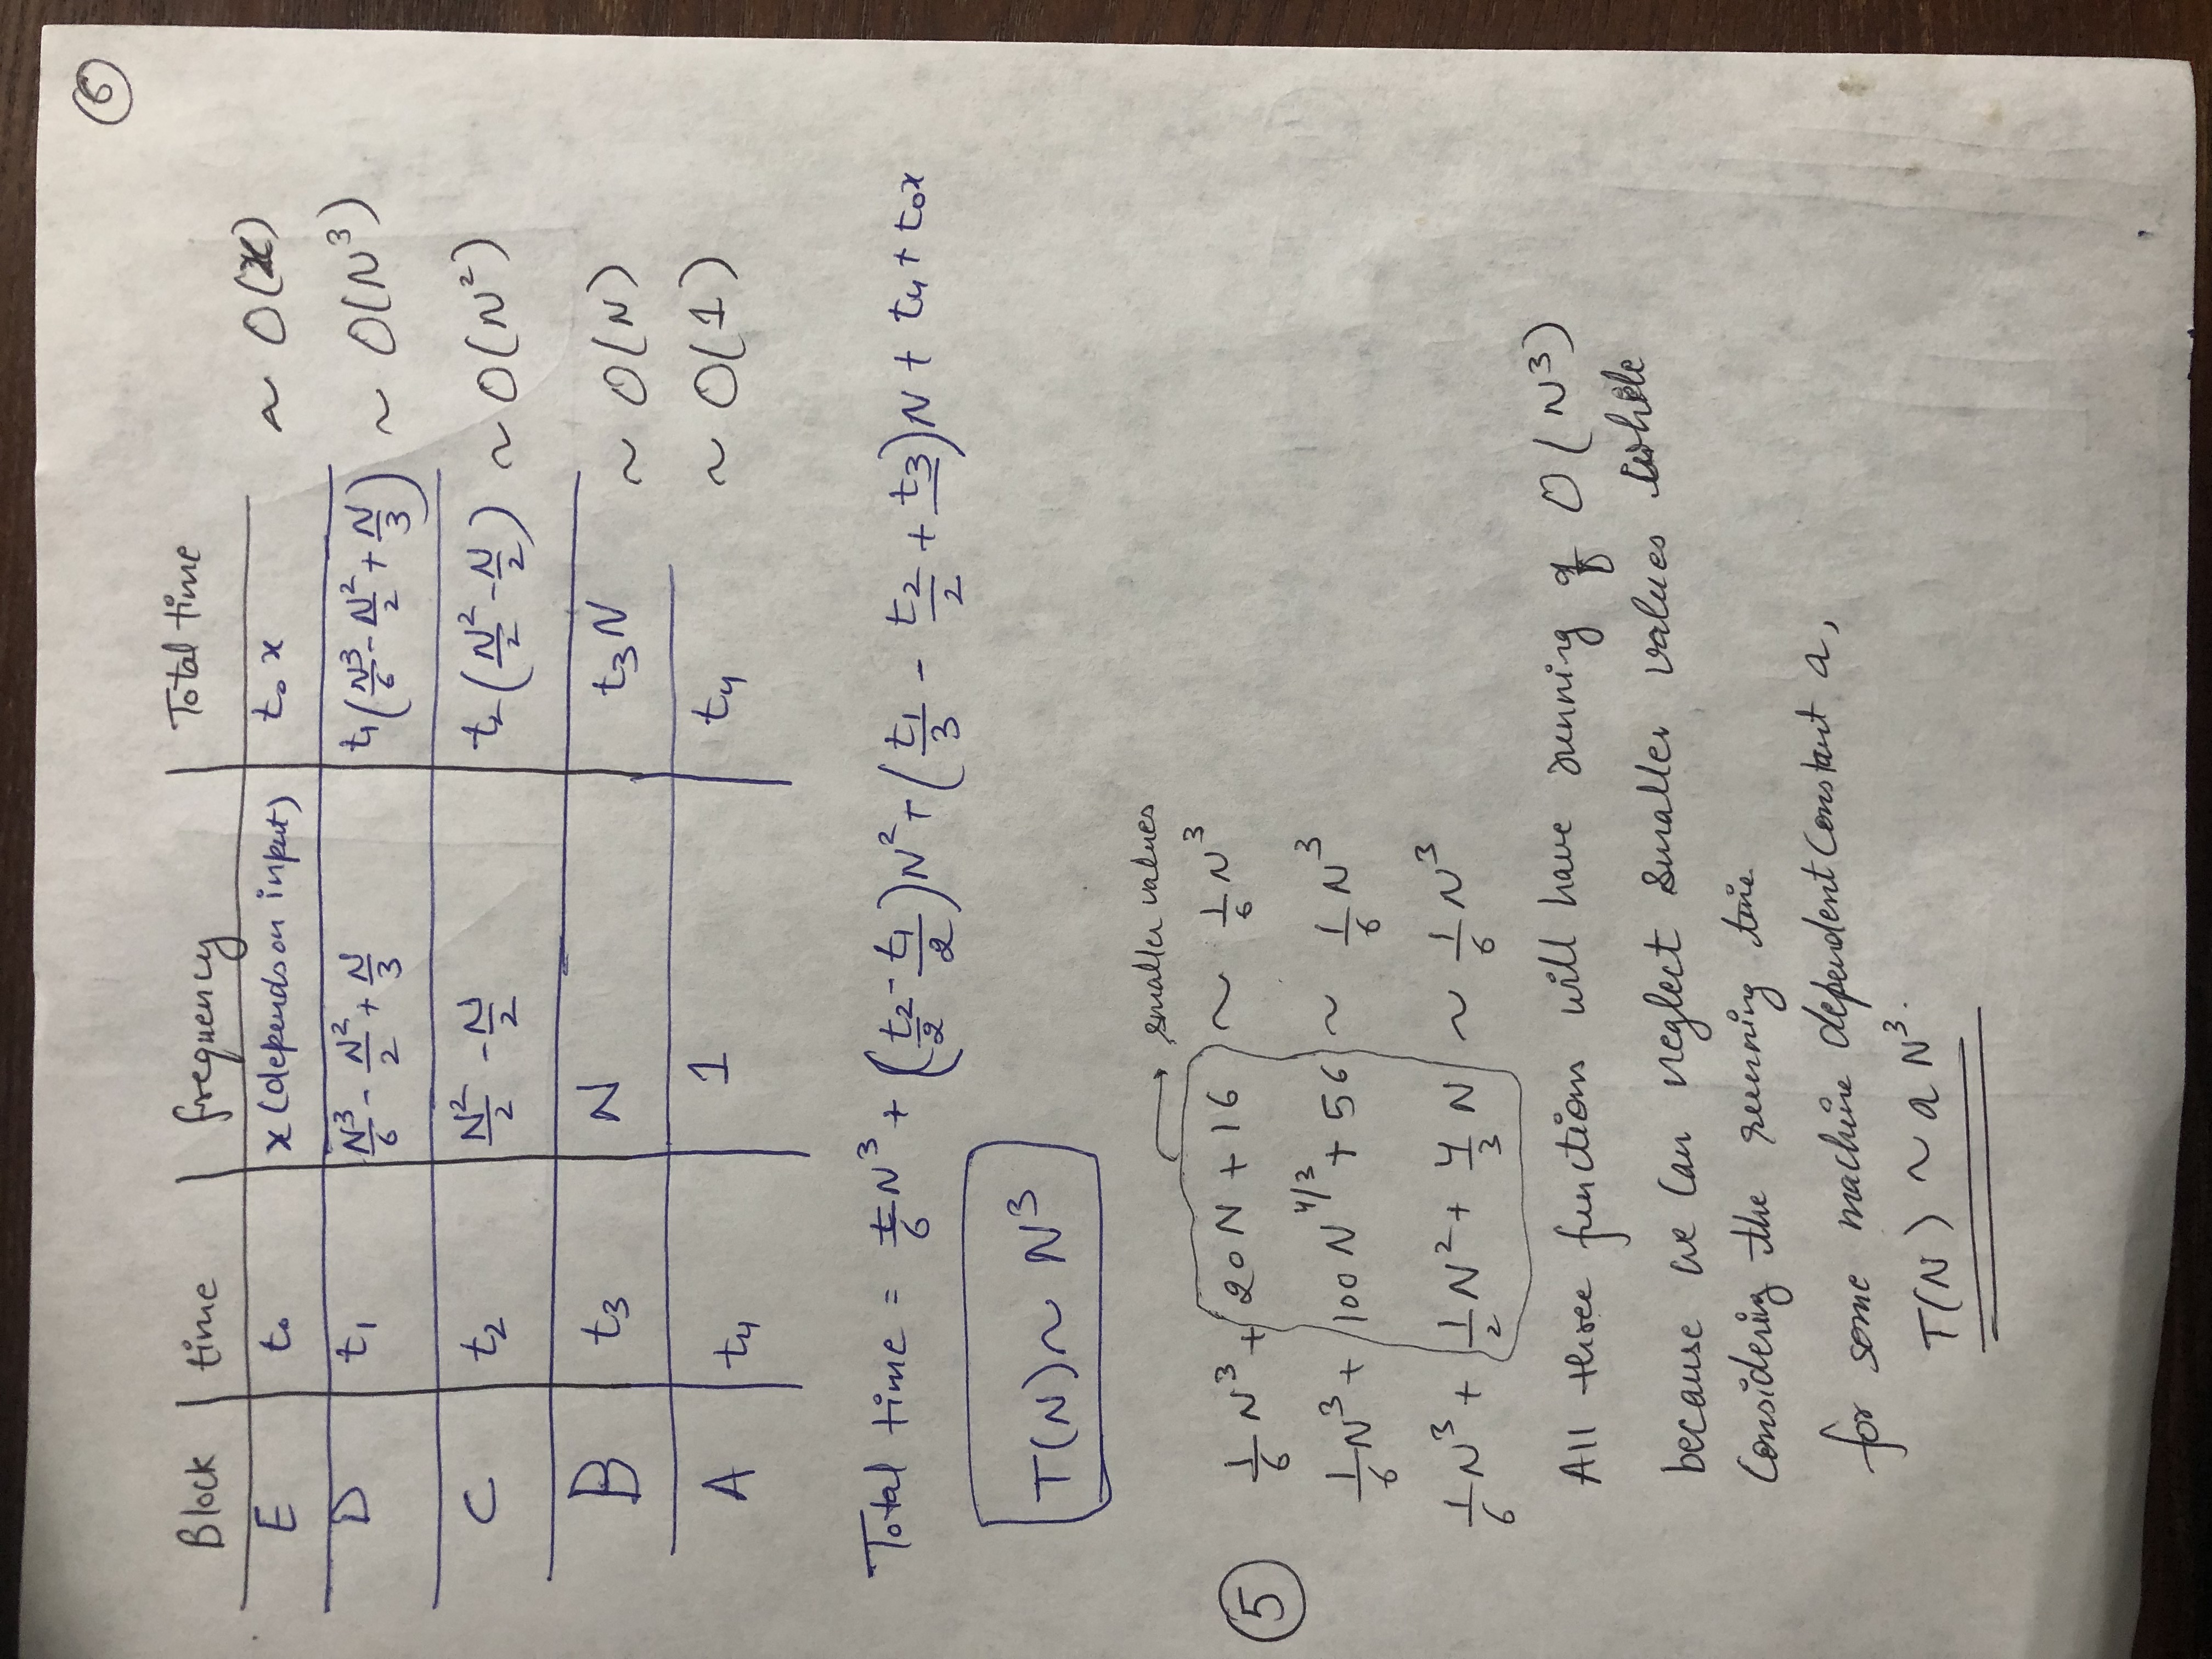 6
Block | time | frequency | Total time
E | t₀ | x (depends on input) | t₀ x ~ O(x)
D | t₁ | N³/6 - N²/2 + N/3 | t₁(N³/6 - N²/2 + N/3) ~ O(N³)
C | t₂ | N²/2 - N/2 | t₂(N²/2 - N/2) ~ O(N²)
B | t₃ | N | t₃N ~ O(N)
A | t₄ | 1 | t₄ ~ O(1)
Total time = t/6 N³ + (t₂/2 - t₁/2)N² + (t₁/3 - t₂/2 + t₃)N + t₄ + t₀x
T(N) ~ N³
→ smaller values
5 1/6 N³ + 20N + 16 ~ 1/6 N³
1/6 N³ + 100N^4/3 + 56 ~ 1/6 N³
1/6 N³ + 1/2 N² + 4/3 N ~ 1/6 N³
All three functions will have running of O(N³)
because we can neglect smaller values while
Considering the running time
for some machine dependent Constant a,
T(N) ~ a N³.